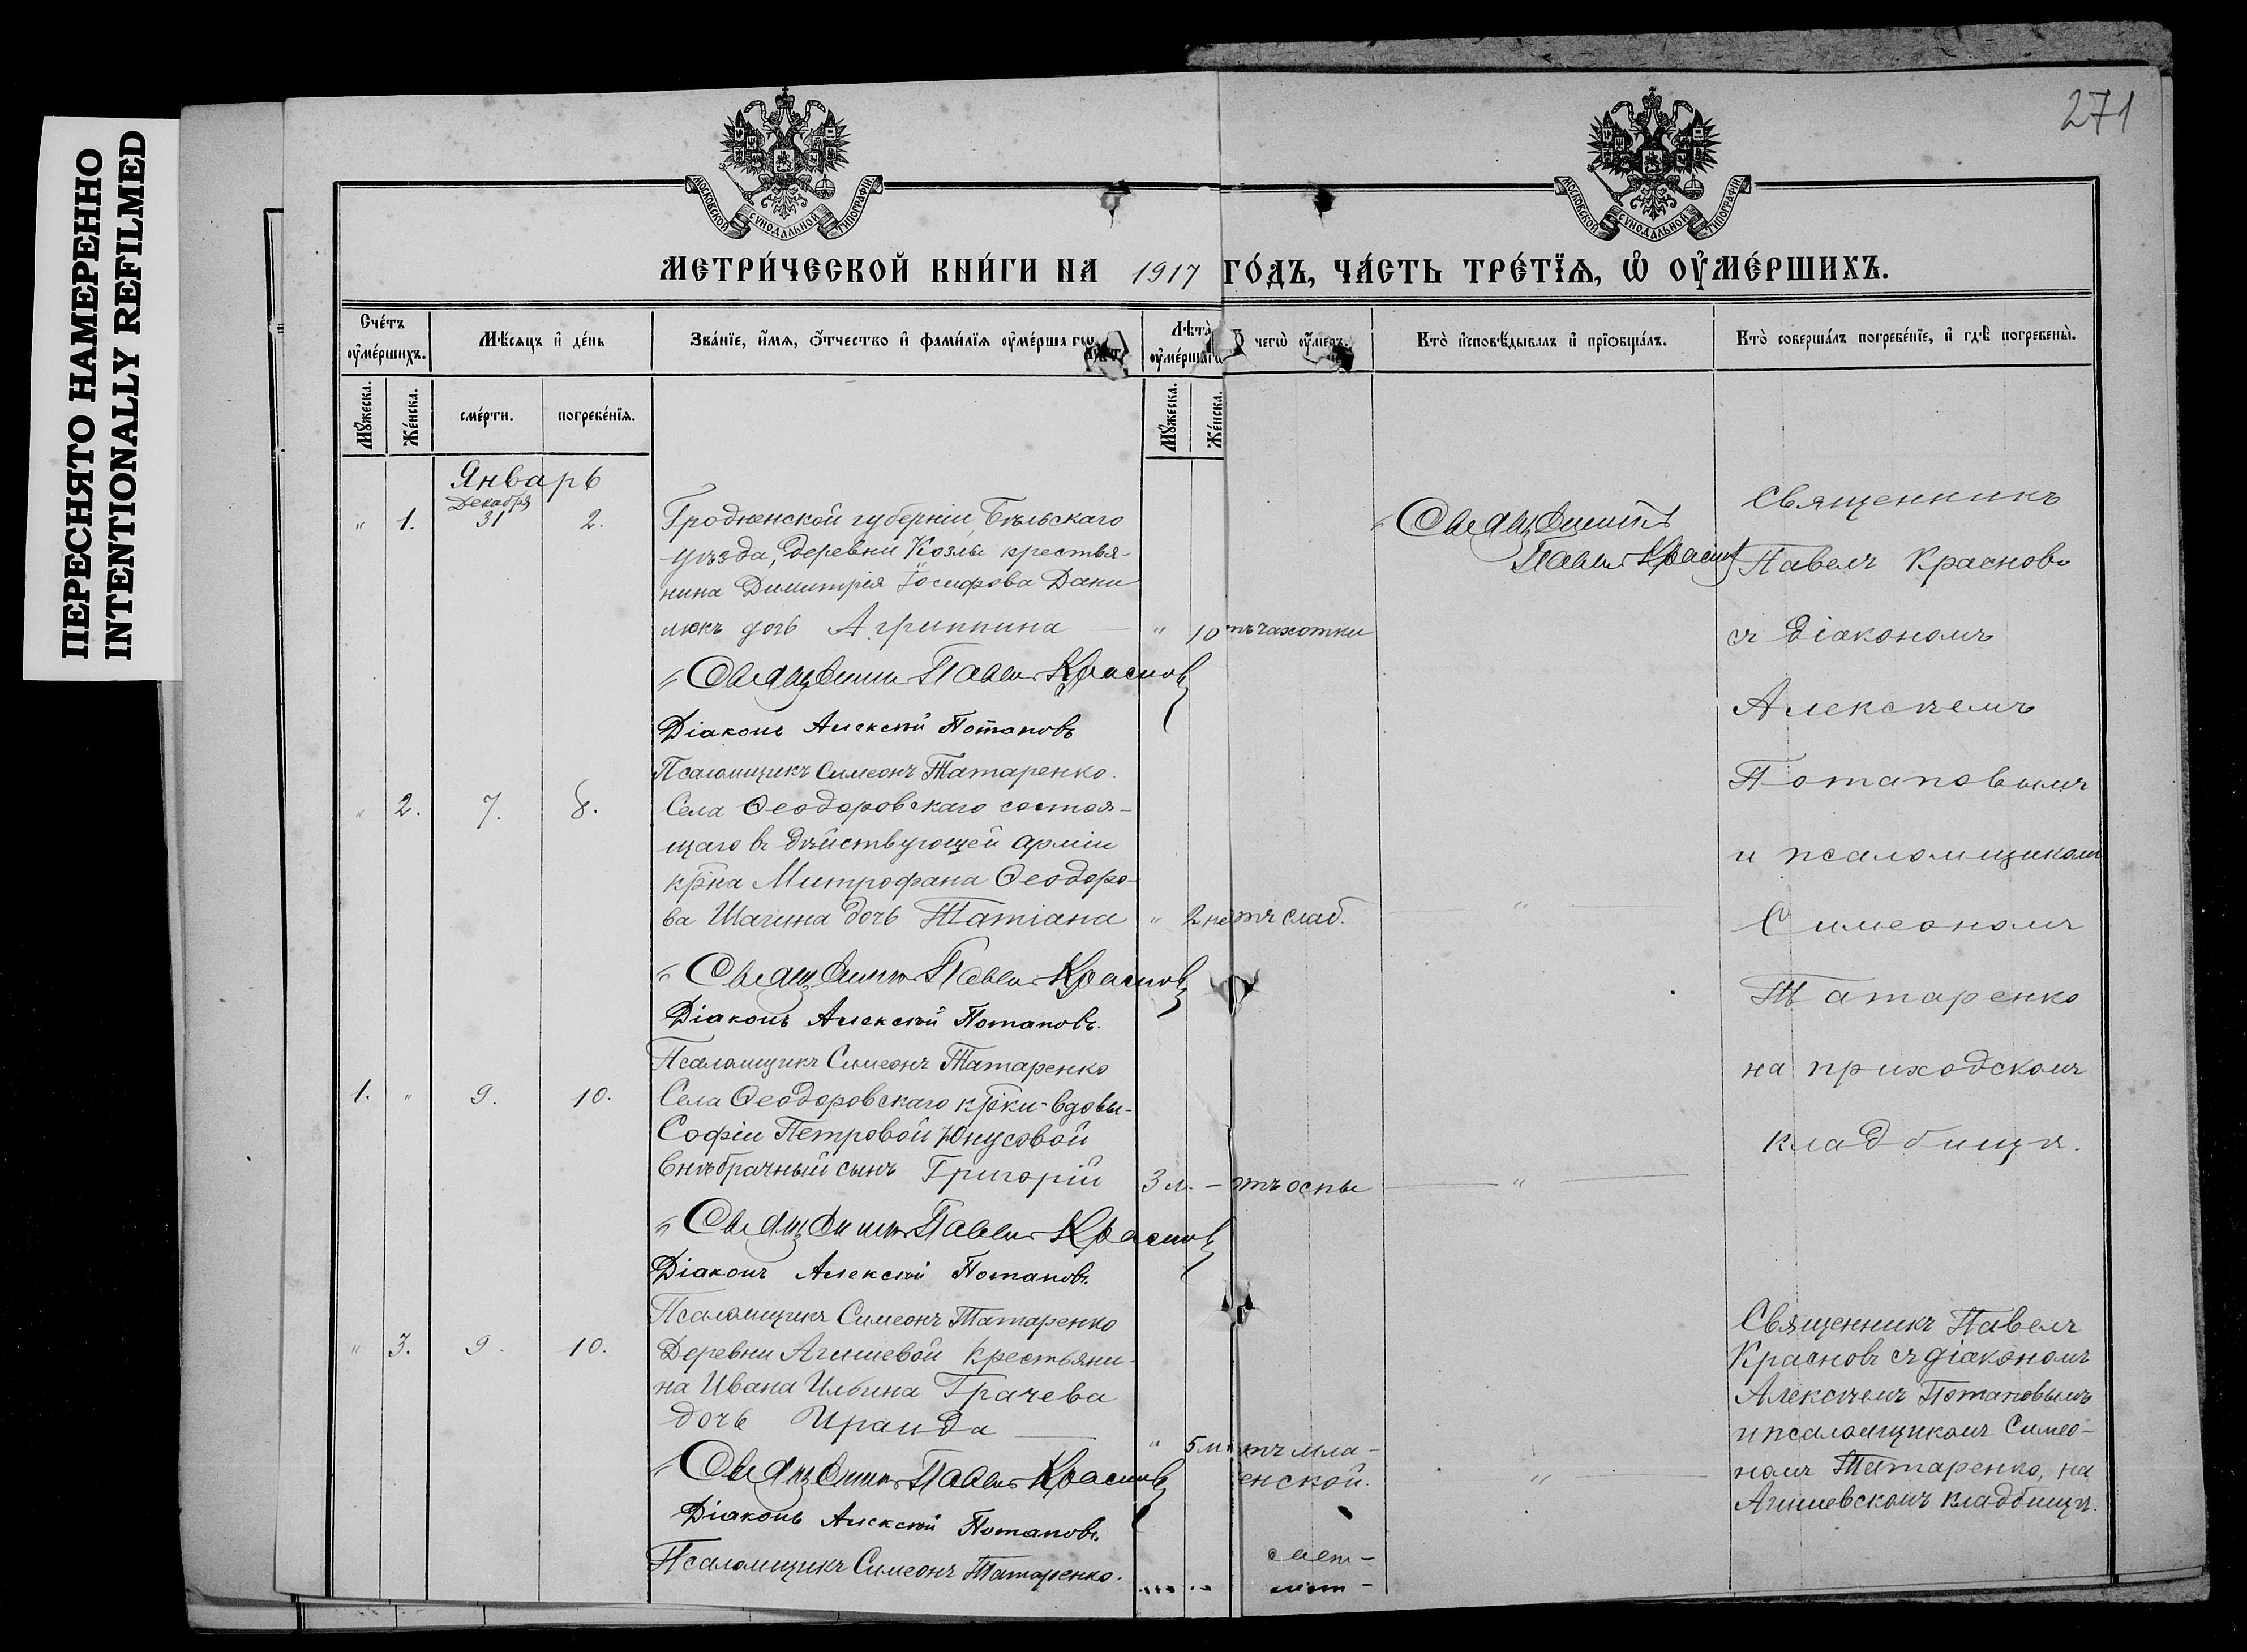 ПЕРЕСНЯТО НАМЕРЕННО
INTENTIONALLY REFILMED
271
МОСКОВСКОЙ СѴНОДАЛЬНОЙ ТИПОГРАФІИ
МОСКОВСКОЙ СѴНОДАЛЬНОЙ ТИПОГРАФІИ
МЕТРИ́ЧЕСКОЙ КНИ́ГИ НА 1917 ГО́ДЪ, ЧА́СТЬ ТРЕ́ТЇѦ, Ѡ҆ ОУ҆МЕ́РШИХЪ.
Сче́тъ оу҆ме́ршихъ.
Мѣ́сяцъ и҆ де́нь
Зва́нїе, и҆́мѧ, ѻ҆́тчество и҆ фами́лїѧ оу҆ме́ршагѡ
Лѣ́та оу҆ме́ршагѡ
чегѡ̀ оу҆́меръ.
Кто̀ и҆сповѣ́дывалъ и҆ прїѡбща́лъ.
Кто̀ соверша́лъ погребе́нїе, и҆ гдѣ̀ погребены̀.
Мꙋ́жеска. Же́нска. сме́рти. погребе́нїѧ. Мꙋ́жеска. Же́нска.
Январь
" 1. Декабря 31 2.
Гродненской губерніи Бѣльскаго
уѣзда, деревни Козлы крестья-
нина Димитрія Іосифова Дани
люкъ дочь Агриппина — " 10 тъ чахотки
Священникъ Павелъ Красновъ
Діаконъ Алексѣй Потаповъ
Псаломщикъ Симеонъ Татаренко.
Священникъ
Павелъ Красновъ
Священникъ
Павелъ Красновъ
съ діакономъ
Алексѣемъ
Потаповымъ
и псаломщикомъ
Симеономъ
Татаренко
на приходскомъ
кладбищѣ.
" 2. 7. 8.
Села Ѳеодоровскаго состоя-
щаго въ дѣйствующей арміи
кр-на Митрофана Ѳеодоро-
ва Шагина дочь Татіана " 2 не тъ слаб. — " —
Священникъ Павелъ Красновъ
Діаконъ Алексѣй Потаповъ.
Псаломщикъ Симеонъ Татаренко
1. " 9. 10.
Села Ѳеодоровскаго кр-ки-вдовы-
Софіи Петровой Юнусовой
внѣбрачный сынъ Григорій 3 л. — тъ оспы — " —
Священникъ Павелъ Красновъ
Діаконъ Алексѣй Потаповъ.
Псаломщикъ Симеонъ Татаренко
" 3. 9. 10.
Деревни Агишевой крестьяни-
на Ивана Ильина Грачева
дочь Ираида — " 5 м. тъ мла-
енской. "
Священникъ Павелъ Красновъ
Діаконъ Алексѣй Потаповъ.
Псаломщикъ Симеонъ Татаренко.
Священникъ Павелъ
Красновъ съ діакономъ
Алексѣемъ Потаповымъ
и псаломщикомъ Симео-
номъ Татаренко, на
Агишевскомъ кладбищѣ.